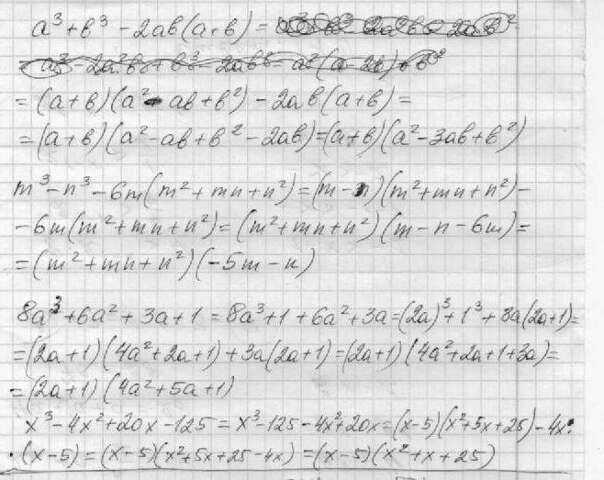 a³ + b³ - 2ab(a+b) =
= (a+b)(a² - ab + b²) - 2ab(a+b) =
= (a+b)(a² - ab + b² - 2ab) = (a+b)(a² - 3ab + b²)
m³ - n³ - 6m(m² + mn + n²) = (m - n)(m² + mn + n²) -
- 6m(m² + mn + n²) = (m² + mn + n²)(m - n - 6m) =
= (m² + mn + n²)(-5m - n)
8a³ + 6a² + 3a + 1 = 8a³ + 1 + 6a² + 3a = (2a)³ + 1³ + 3a(2a+1) =
= (2a+1)(4a² + 2a + 1) + 3a(2a+1) = (2a+1)(4a² + 2a + 1 + 3a) =
= (2a+1)(4a² + 5a + 1)
x³ - 4x² + 20x - 125 = x³ - 125 - 4x² + 20x = (x-5)(x² + 5x + 25) - 4x ·
· (x-5) = (x-5)(x² + 5x + 25 - 4x) = (x-5)(x² + x + 25)